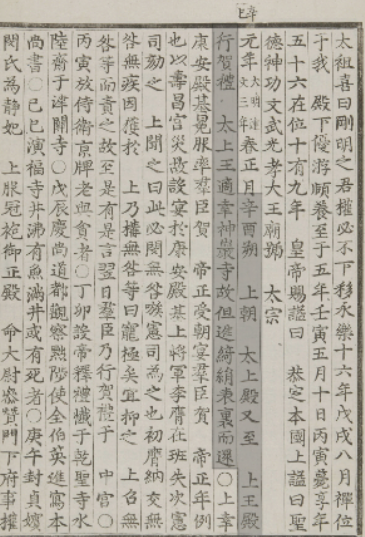 辛巳
太祖喜曰剛明之君權必不下移永樂十六年戊戌八月禪位
于我 殿下優游頤養至于五年壬寅五月十日丙寅薨享年
五十六在位十有九年 皇帝賜謚曰 恭定本國上謚曰聖
德神功文武光孝大王廟號 太宗
元年大明建文三年春正月辛酉朔 上朝 太上殿又至 上王殿
行賀禮 太上王適幸神巖寺故但進綺絹表裏而還○上幸
康安殿基冕服率羣臣賀 帝正受朝宴羣臣賀 帝正年例
也以壽昌宮災故設宴於康安殿基上將軍李膺在班失次憲
司劾之 上聞之曰此必閔無咎嗾憲司為之也初膺納交無
咎無疾因獲於 上乃擯無咎等曰寵極矣宜抑之 上召無
咎等而責之故至是有是言翌日羣臣乃行賀禮于 中宮○
丙寅放侍衛京牌老與貧者○丁卯設帝釋禮懺于乾聖寺水
陸齋于津關寺○戊辰慶尚道都觀察黜陟使全伯英進寫本
尚書○己巳演福寺井沸有魚滿井或有死者○庚午封貞嬪
閔氏為靜妃 上服冠袍御正殿 命大尉叅贊門下府事權